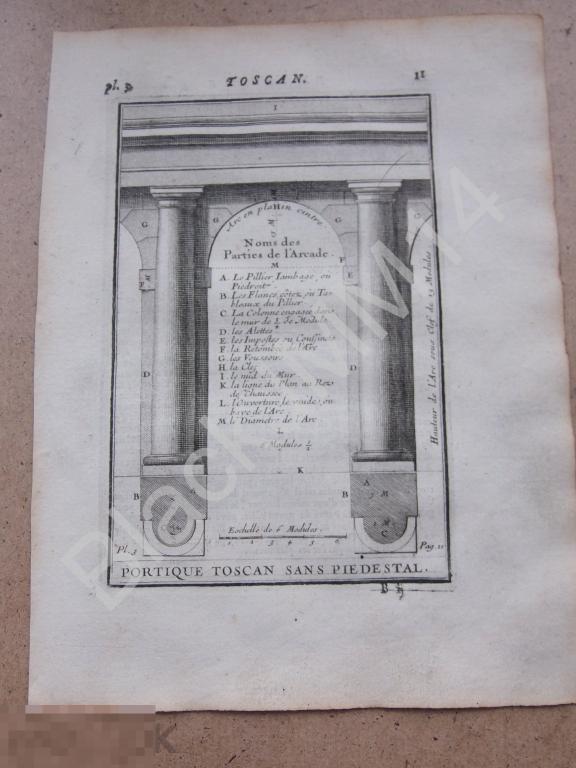 pl. 3
TOSCAN.
11
I
Arc en plein cintre.
Noms des
Parties de l'Arcade.
A. Le Pillier Iambage, ou
Piedroit.
B. Les Flancs, côtez, ou Ta-
bleaux du Pillier
C. La Colonne engagée dans
le mur de Module
D. les Alettes
E. les Impostes ou Coussinets
F. la Retombée de l'Arc
G. les Voussoirs
H. la Clef
I. le nud du Mur
K. la ligne du Plan au Rez
de Chaussée
L. l'Ouverture, le vuide, ou
baye de l'Arc
M. le Diametre de l'Arc
L
6 Modules 1/2
K
G
H
G
M
F
F M
E
D
D
Hauteur de l'Arc sous Clef de 13 Modules
B
A
B
A
3 M
1 M
C
Eschelle de 6 Modules.
1 2 3 4 5 6
Pl. 3
Pag. 11
PORTIQUE TOSCAN SANS PIEDESTAL.
B
BlackMMM14